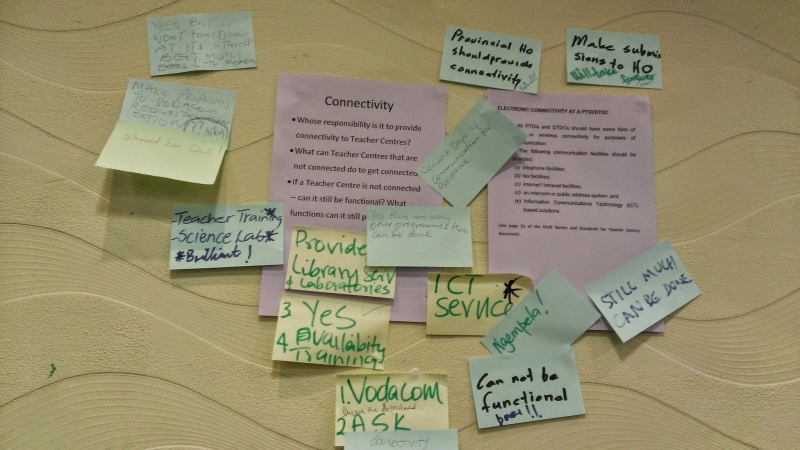 YES BUT IT
WONT function
AT ITS UTMOST
BEST.
Provincial HO
should provide
connectivity
Make submis
sions to HO
Will take forever
MAKE
TO VODACOM
should be
Connectivity
Whose responsibility is it to provide
connectivity to Teacher Centres?
What can Teacher Centres that are
not connected do to get connected
If a Teacher Centre is not connected
– can it still be functional? What
functions can it still p
ELECTRONIC CONNECTIVITY AT A PTDI/DTDC
All PTDIs and DTDCs should have some form of
or wireless connectivity for purposes of
The following communication facilities should be
(a) telephone facilities;
(b) fax facilities;
(c) internet / intranet facilities;
(d) an intercom or public address system; and
(e) Information Communications Technology (ICT)
based solutions.
(see page 32 of the Draft Norms and Standards for Teacher Centres
document).
-Teacher Training*
-Science Lab*
*Brilliant!
Yes there are many
other programmes that
can be done
Provide
Library Serv
& Laboratories
3 Yes
4. Availabity
Training
ICT
Service
Ngempela!
STILL MUCH
CAN BE DONE
Can not be
functional
1. Vodacom
2 ASK
CONNECTIVITY